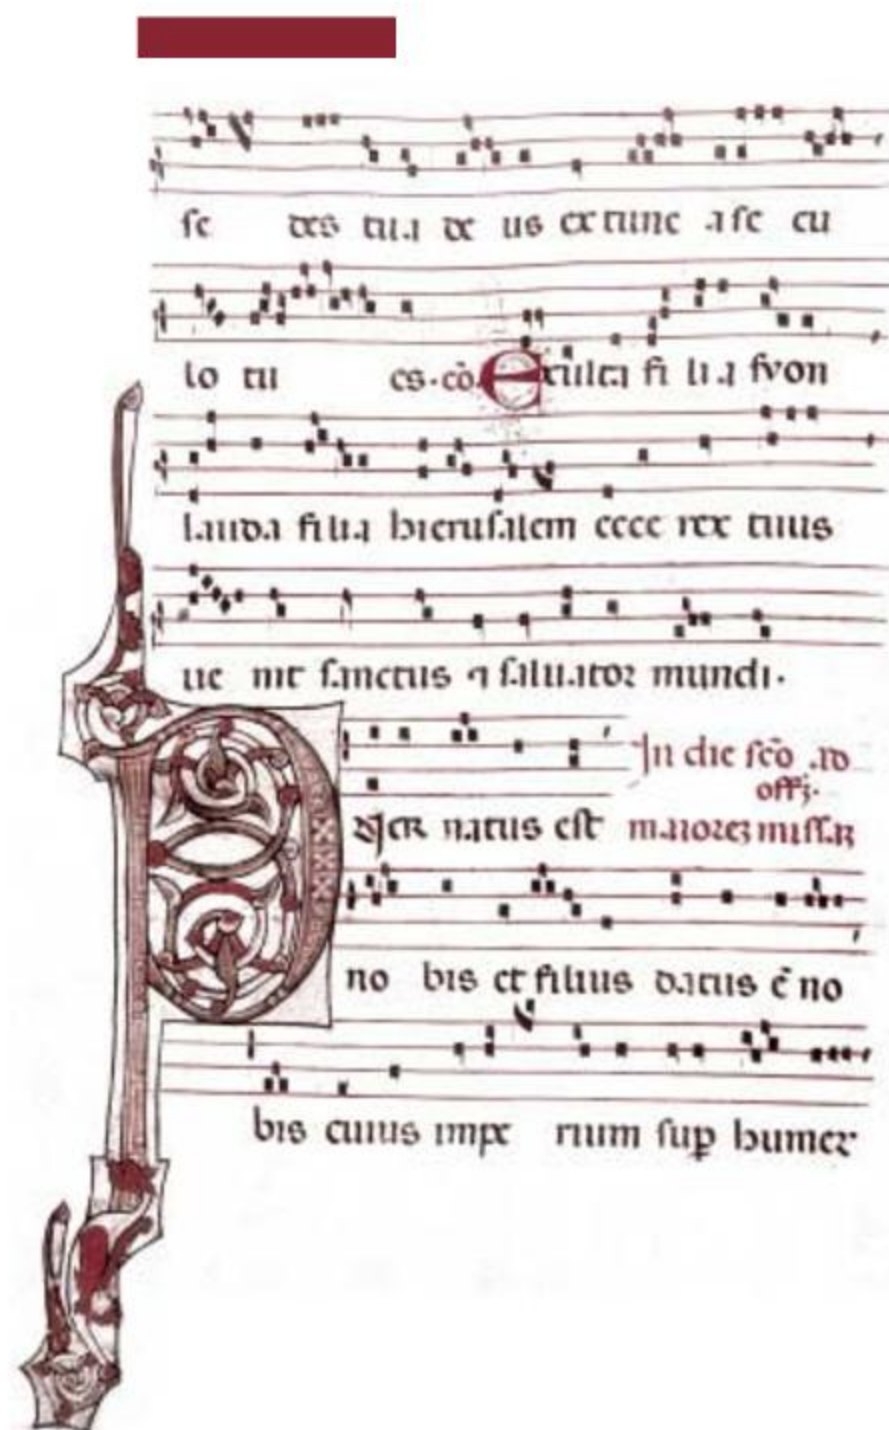 se des tua de us ex tunc a se cu
lo tu es. cō. Exulta fi li a syon
lauda filia hierusalem ecce rex tuus
ue nit sanctus ⁊ saluator mundi.
In die scō ad
offꝫ.
Puer natus est maioreꝫ missaꝫ
no bis et filius datus ē no
bis cuius impe rium suꝑ humer